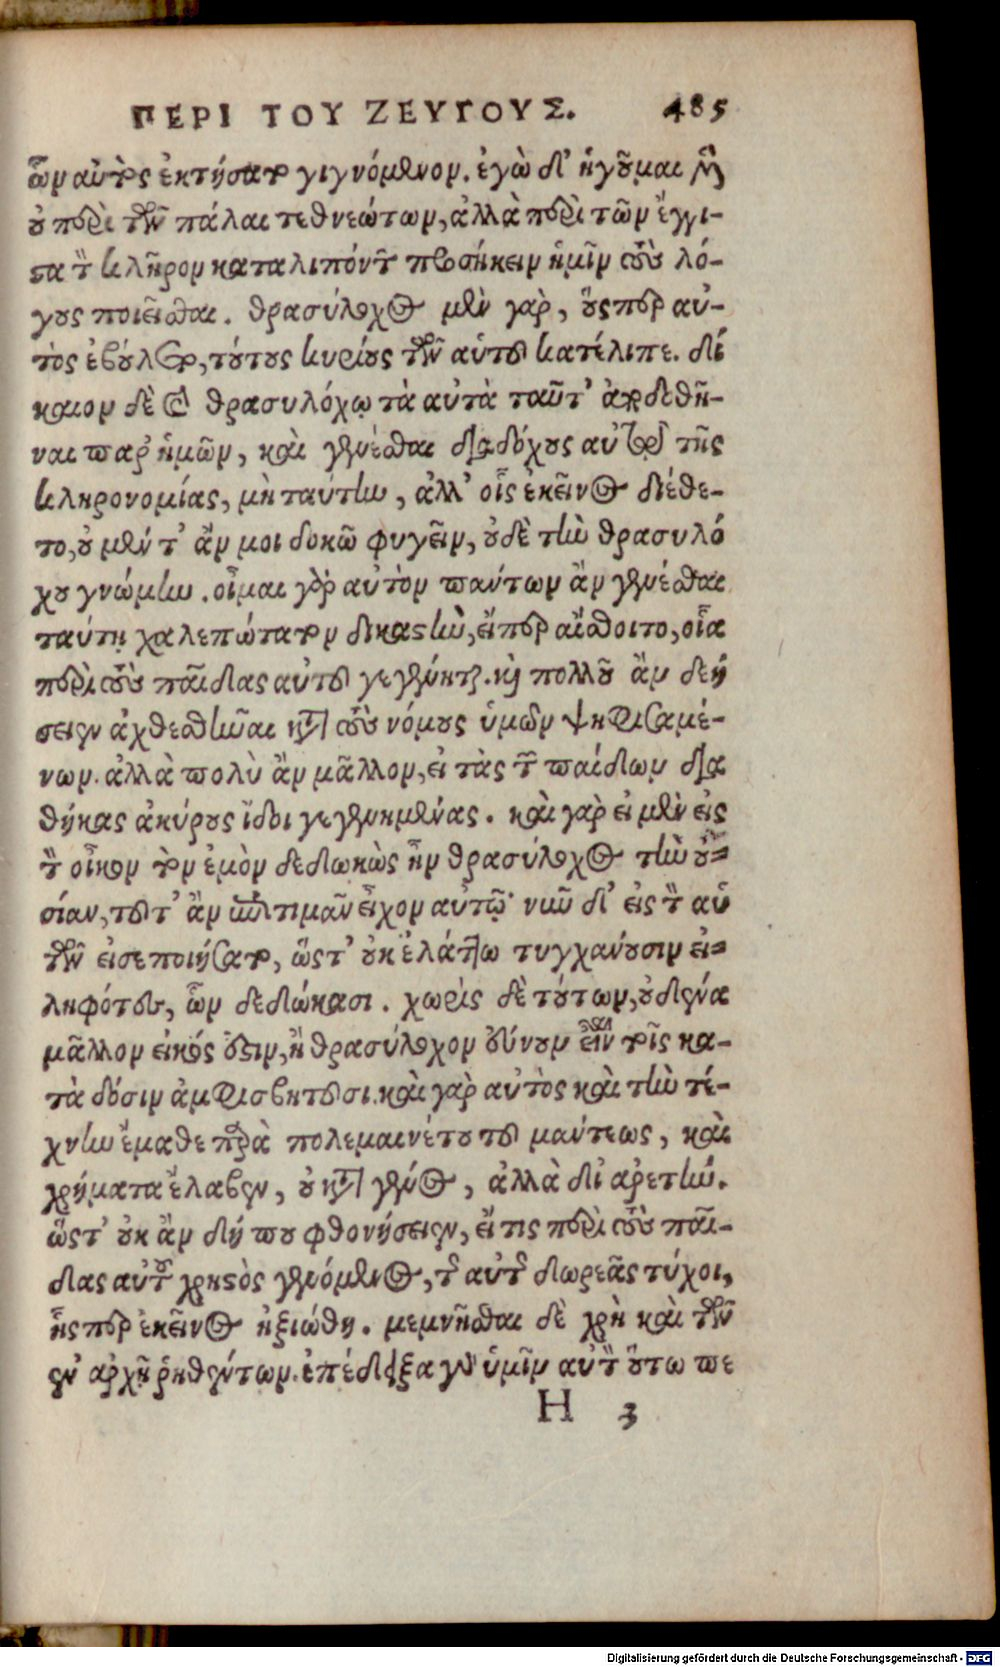 ΠΕΡΙ ΤΟΥ ΖΕΥΓΟΥΣ. 485
ὧν αὐτὸς ἐκτήσατο γιγνόμενον. ἐγὼ δ' ἡγοῦμαι μὴ
οὐ περὶ τῶν πάλαι τεθνεώτων, ἀλλὰ περὶ τῶν ἔγγι-
στα τὸν κλῆρον καταλιπόντων προσήκειν ἡμῖν τοὺς λό-
γους ποιεῖσθαι. Θρασύλοχος μὲν γὰρ, οὕσπερ αὐ-
τὸς ἐβούλετο, τούτους κυρίους τῶν αὑτοῦ κατέλιπε. δί
καιον δὲ καὶ Θρασυλόχῳ τὰ αὐτὰ ταῦτ' ἀποδοθῆ-
ναι παρ' ἡμῶν, καὶ γενέσθαι διαδόχους αὐτοῦ τῆς
κληρονομίας, μὴ ταύτην, ἀλλ' οἷς ἐκεῖνος διέθε-
το, οὐ μέντ' ἄν μοι δοκῶ φυγεῖν, οὐδὲ τὴν Θρασυλό
χου γνώμην. οἶμαι γὰρ αὐτὸν πάντων ἂν γενέσθαι
ταύτῃ χαλεπώτατον δικαστὴν, εἴπερ αἴσθοιτο, οἵα
περὶ τοὺς παῖδας αὐτοῦ γεγένηται. καὶ πολλοῦ ἂν δεή
σειεν ἀχθεσθῆναι κατὰ τοὺς νόμους ὑμῶν ψηφισαμέ-
νων. ἀλλὰ πολὺ ἂν μᾶλλον, εἰ τὰς τῶν παίδων δια
θήκας ἀκύρους ἴδοι γεγενημένας. καὶ γὰρ εἰ μὲν εἰς
τὸν οἶκον τὸν ἐμὸν δεδωκὼς ἦν Θρασύλοχος τὴν οὐ-
σίαν, τοῦτ' ἂν ἐπιτιμᾶν εἶχον αὐτῷ· νῦν δ' εἰς τὸν αὑ
τῶν εἰσεποιήσατο, ὥστ' οὐκ ἐλάττω τυγχάνουσιν εἰ-
ληφότες, ὧν δεδώκασι. χωρὶς δὲ τούτων, οὐδένα
μᾶλλον εἰκός ἐστιν, ἢ Θρασύλοχον εὔνουν εἶναι τοῖς κα-
τὰ δόσιν ἀμφισβητοῦσι. καὶ γὰρ αὐτὸς καὶ τὴν τέ-
χνην ἔμαθε παρὰ Πολεμαινέτου τοῦ μάντεως, καὶ
χρήματα ἔλαβεν, οὐ κατὰ γένος, ἀλλὰ δι' ἀρετήν.
ὥστ' οὐκ ἂν δή που φθονήσειεν, εἴ τις περὶ τοὺς παῖ-
δας αὐτοῦ χρηστὸς γενόμενος, τῆς αὐτῆς δωρεᾶς τύχοι,
ἧσπερ ἐκεῖνος ἠξιώθη. μεμνῆσθαι δὲ χρὴ καὶ τῶν
ἐν ἀρχῇ ῥηθέντων. ἐπέδειξα γὰρ ὑμῖν αὐτὸν οὕτω πε
Η 3
Digitalisierung gefördert durch die Deutsche Forschungsgemeinschaft - DFG